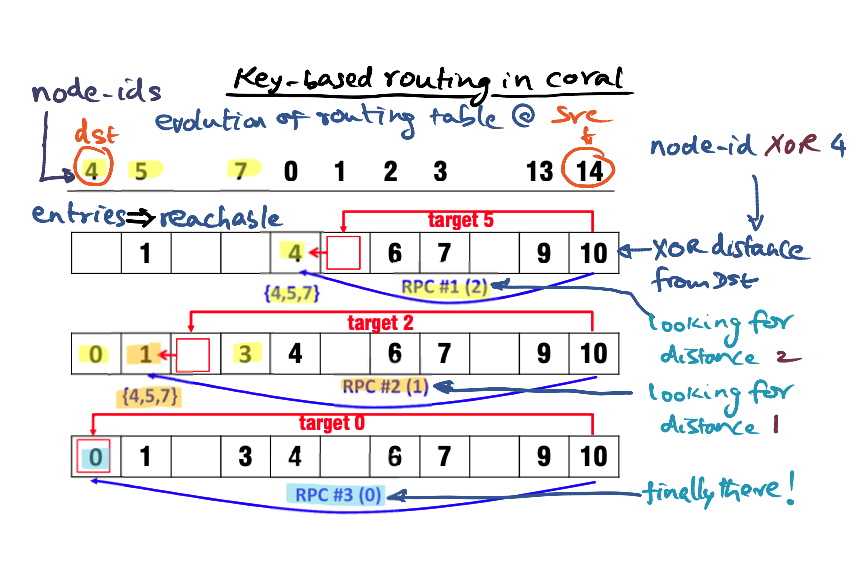 Key-based routing in coral
node-ids
evolution of routing table @ src
dst
node-id XOR 4
4 5 7 0 1 2 3 13 14
entries ⇒ reachable
target 5
1 4 6 7 9 10
XOR distance
from DST
{4,5,7}
RPC #1 (2)
looking for
distance 2
target 2
0 1 3 4 6 7 9 10
{4,5,7}
RPC #2 (1)
looking for
distance 1
target 0
0 1 3 4 6 7 9 10
RPC #3 (0)
finally there!